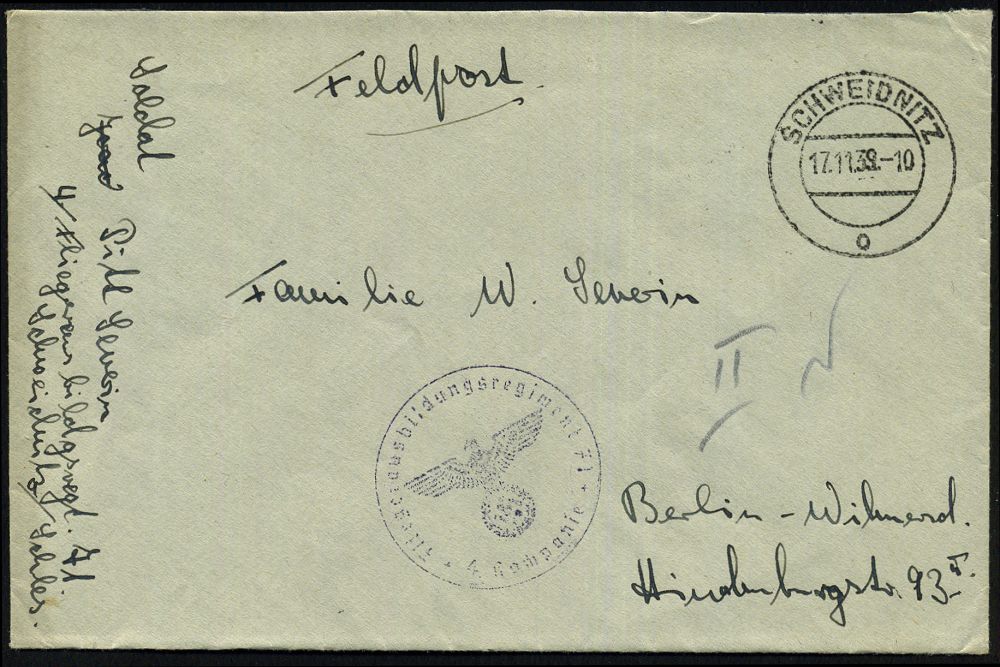 Feldpost
SCHWEIDNITZ
17.11.39.-10
o
Soldat
Pitt Severin
4/Fliegerausbildgsregt. 71.
Schweidnitz/Schles.
Familie W. Severin
II
Fliegerausbildungsregiment 71 · 4. Kompanie ·
Berlin-Wilmersd.
Hindenburgstr. 93 II.